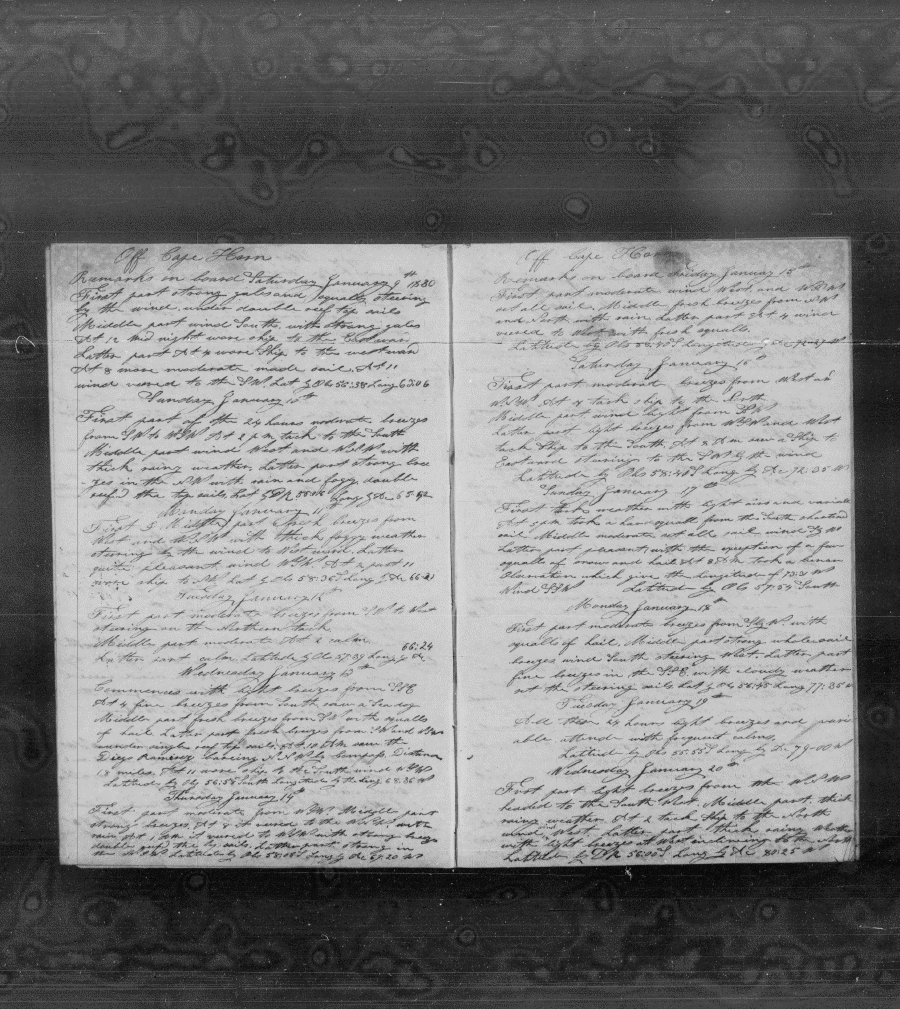 Off Cape Horn
Remarks on board Saturday January 9th 1830
First part strong gales and squally steering
by the wind under double reef top sails
Middle part wind South, with strong gales
At 12 Mid night wore ship to the Eastward
Latter part At 4 wore Ship to the westward
At 8 more moderate made sail. At 11
wind veered to the SW. Lat by Obs 55:58 Long 63:06
Sunday January 10th
First part of the 24 hours moderate breezes
from SW to WSW At 2 pm tack to the South
Middle part wind West and WSW with
thick rainy weather, Latter part strong bree
-zes in the NW with rain and foggy double
reef'd the top sails. Lat by DR Long by
Monday January 11th
First & Middle part fresh breezes from
West and WSW with thick foggy weather
steering by the wind to West ward, Latter
quite pleasant, wind WSW. At 11
wore ship to NW. Lat by Obs 58:36 Long by 66:21
Tuesday January 12th
First part moderate breezes from SW to West
Steering on the Northern tack
Middle part moderate At 2 calm
Latter part calm Latitude by Obs 57:59 Long by 66:24
Wednesday January 13th
Commences with light breezes from SSE
At 4 fine breezes from South saw a Sea dog
Middle part fresh breezes from SW with squalls
of hail Latter part fresh breezes from SW and
under single reef top sails. At 10 AM saw the
Diego Ramirez bearing NNW by Compass Distance
18 miles. At 11 wore ship to the South wind WSW
Latitude by Obs 56:58 South Longitude by 68:36 W
Thursday January 14th
First part moderate from WSW Middle part
strong breezes, At 4 veered to the with
rain At veered to WSW with strong breezes
double reef'd the top sails, Latter part, strong in
the Latitude by Obs Long by 69:20 W
Off Cape Horn
Remarks on board Friday January 15th
First part moderate wind West and WSW
set all sail, Middle fresh breezes from NW
and North with rain, Latter part At 4 wind
veered to West with fresh squalls.
Latitude by Obs Longitude by
Saturday January 16th
First part moderate breezes from West and
WSW. At 8 tack ship to the North
Middle part wind light from
Latter part light breezes from WSW and West
tack Ship to the South At 8 Am saw a Ship to
Eastward steering to the SW by the wind
Latitude by Obs 58:48 S Long by 72:35 W
Sunday January 17th
First thick weather with light airs and variable
At 9 pm took a hard squall from the South shortend
sail Middle moderate set all sail wind
Latter part pleasant, with the exception of a few
squalls of snow and hail At 8 Am took a lunar
Observation which give the Longitude of
Wind SSW Latitude by Obs 57:54 South
Monday January 18th
First part moderate breezes from with
squalls of hail, Middle part strong whole sail
breezes wind South steering West, Latter part
fine breezes in the SSE, with cloudy weather
set the steering sails Lat by Obs 56:45 Long 77:35 W
Tuesday January 19th
All these 24 hours light breezes and vari
able attend with frequent calms,
Latitude by Obs 55:55 S Long by 79-00 W
Wednesday January 20th
First part light breezes from the WSW
headed to the South West, Middle part, thick
rainy weather At 2 tack Ship to the North
wind West, Latter part thick rainy weather
with light breezes at West inclining to the North
Latitude by DR 56:00 S Long by 80:25 W